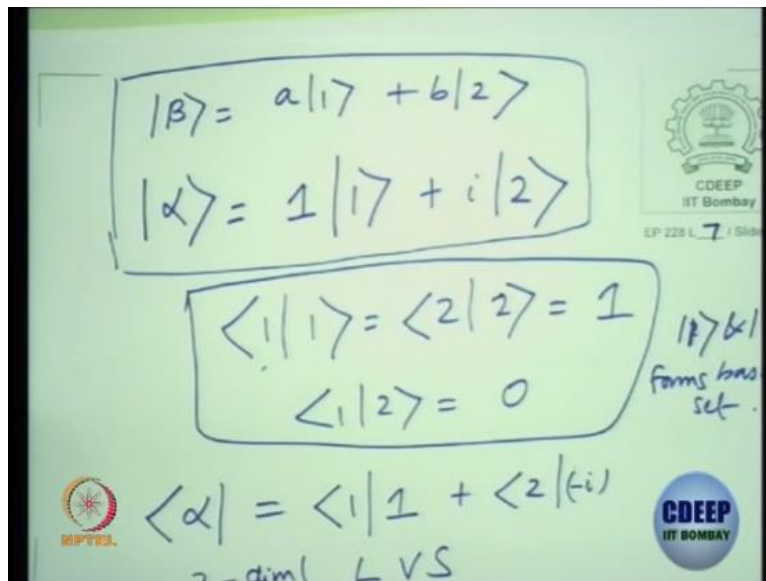 |β⟩ = a|1⟩ + b|2⟩
|α⟩ = 1|1⟩ + i|2⟩
CDEEP
IIT Bombay
EP 228 L 7 / Slide
⟨1|1⟩ = ⟨2|2⟩ = 1
⟨1|2⟩ = 0
|1⟩ &|
forms bas
set.
⟨α| = ⟨1|1 + ⟨2|(-i)
NPTEL
CDEEP
IIT BOMBAY
2-diml LVS